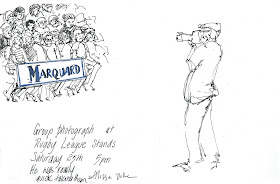 MARQUARD
Group photograph at
Rugby League Stands
Saturday 25th 5pm
He was really